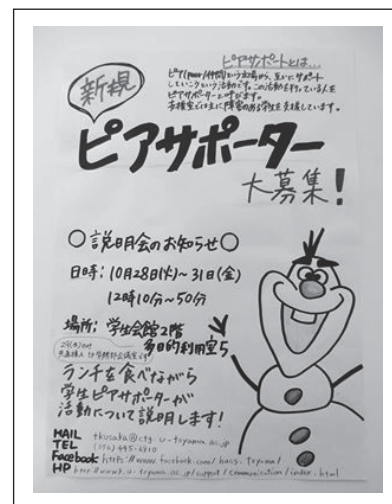 ピアサポートとは…
ピア(peer/仲間)という立場から、互いにサポート
していこうという活動です。この活動を行っている人を
ピアサポーターと呼びます。
支援室では主に障害のある学生を支援しています。
新規
ピアサポーター
大募集!
○説明会のお知らせ○
日時:10月28日(火)~31日(金)
12時10分~50分
場所:学生会館2階
多目的利用室5
ランチを食べながら
学生ピアサポーターが
活動について説明します!
MAIL
TEL (076)445-6910
Facebook https://www.facebook.com/hacs.toyama/
HP http://www3.u-toyama.ac.jp/support/communication/index.html